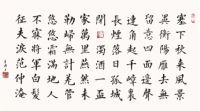 塞下秋來風景
異衡陽雁去無
留意四面邊聲
連角起千嶂裏
長煙落日孤城
閉 濁酒一盃
家萬里燕然未
勒歸無計羌管
悠悠霜滿地人
不寐將軍白髮
征夫淚范仲淹